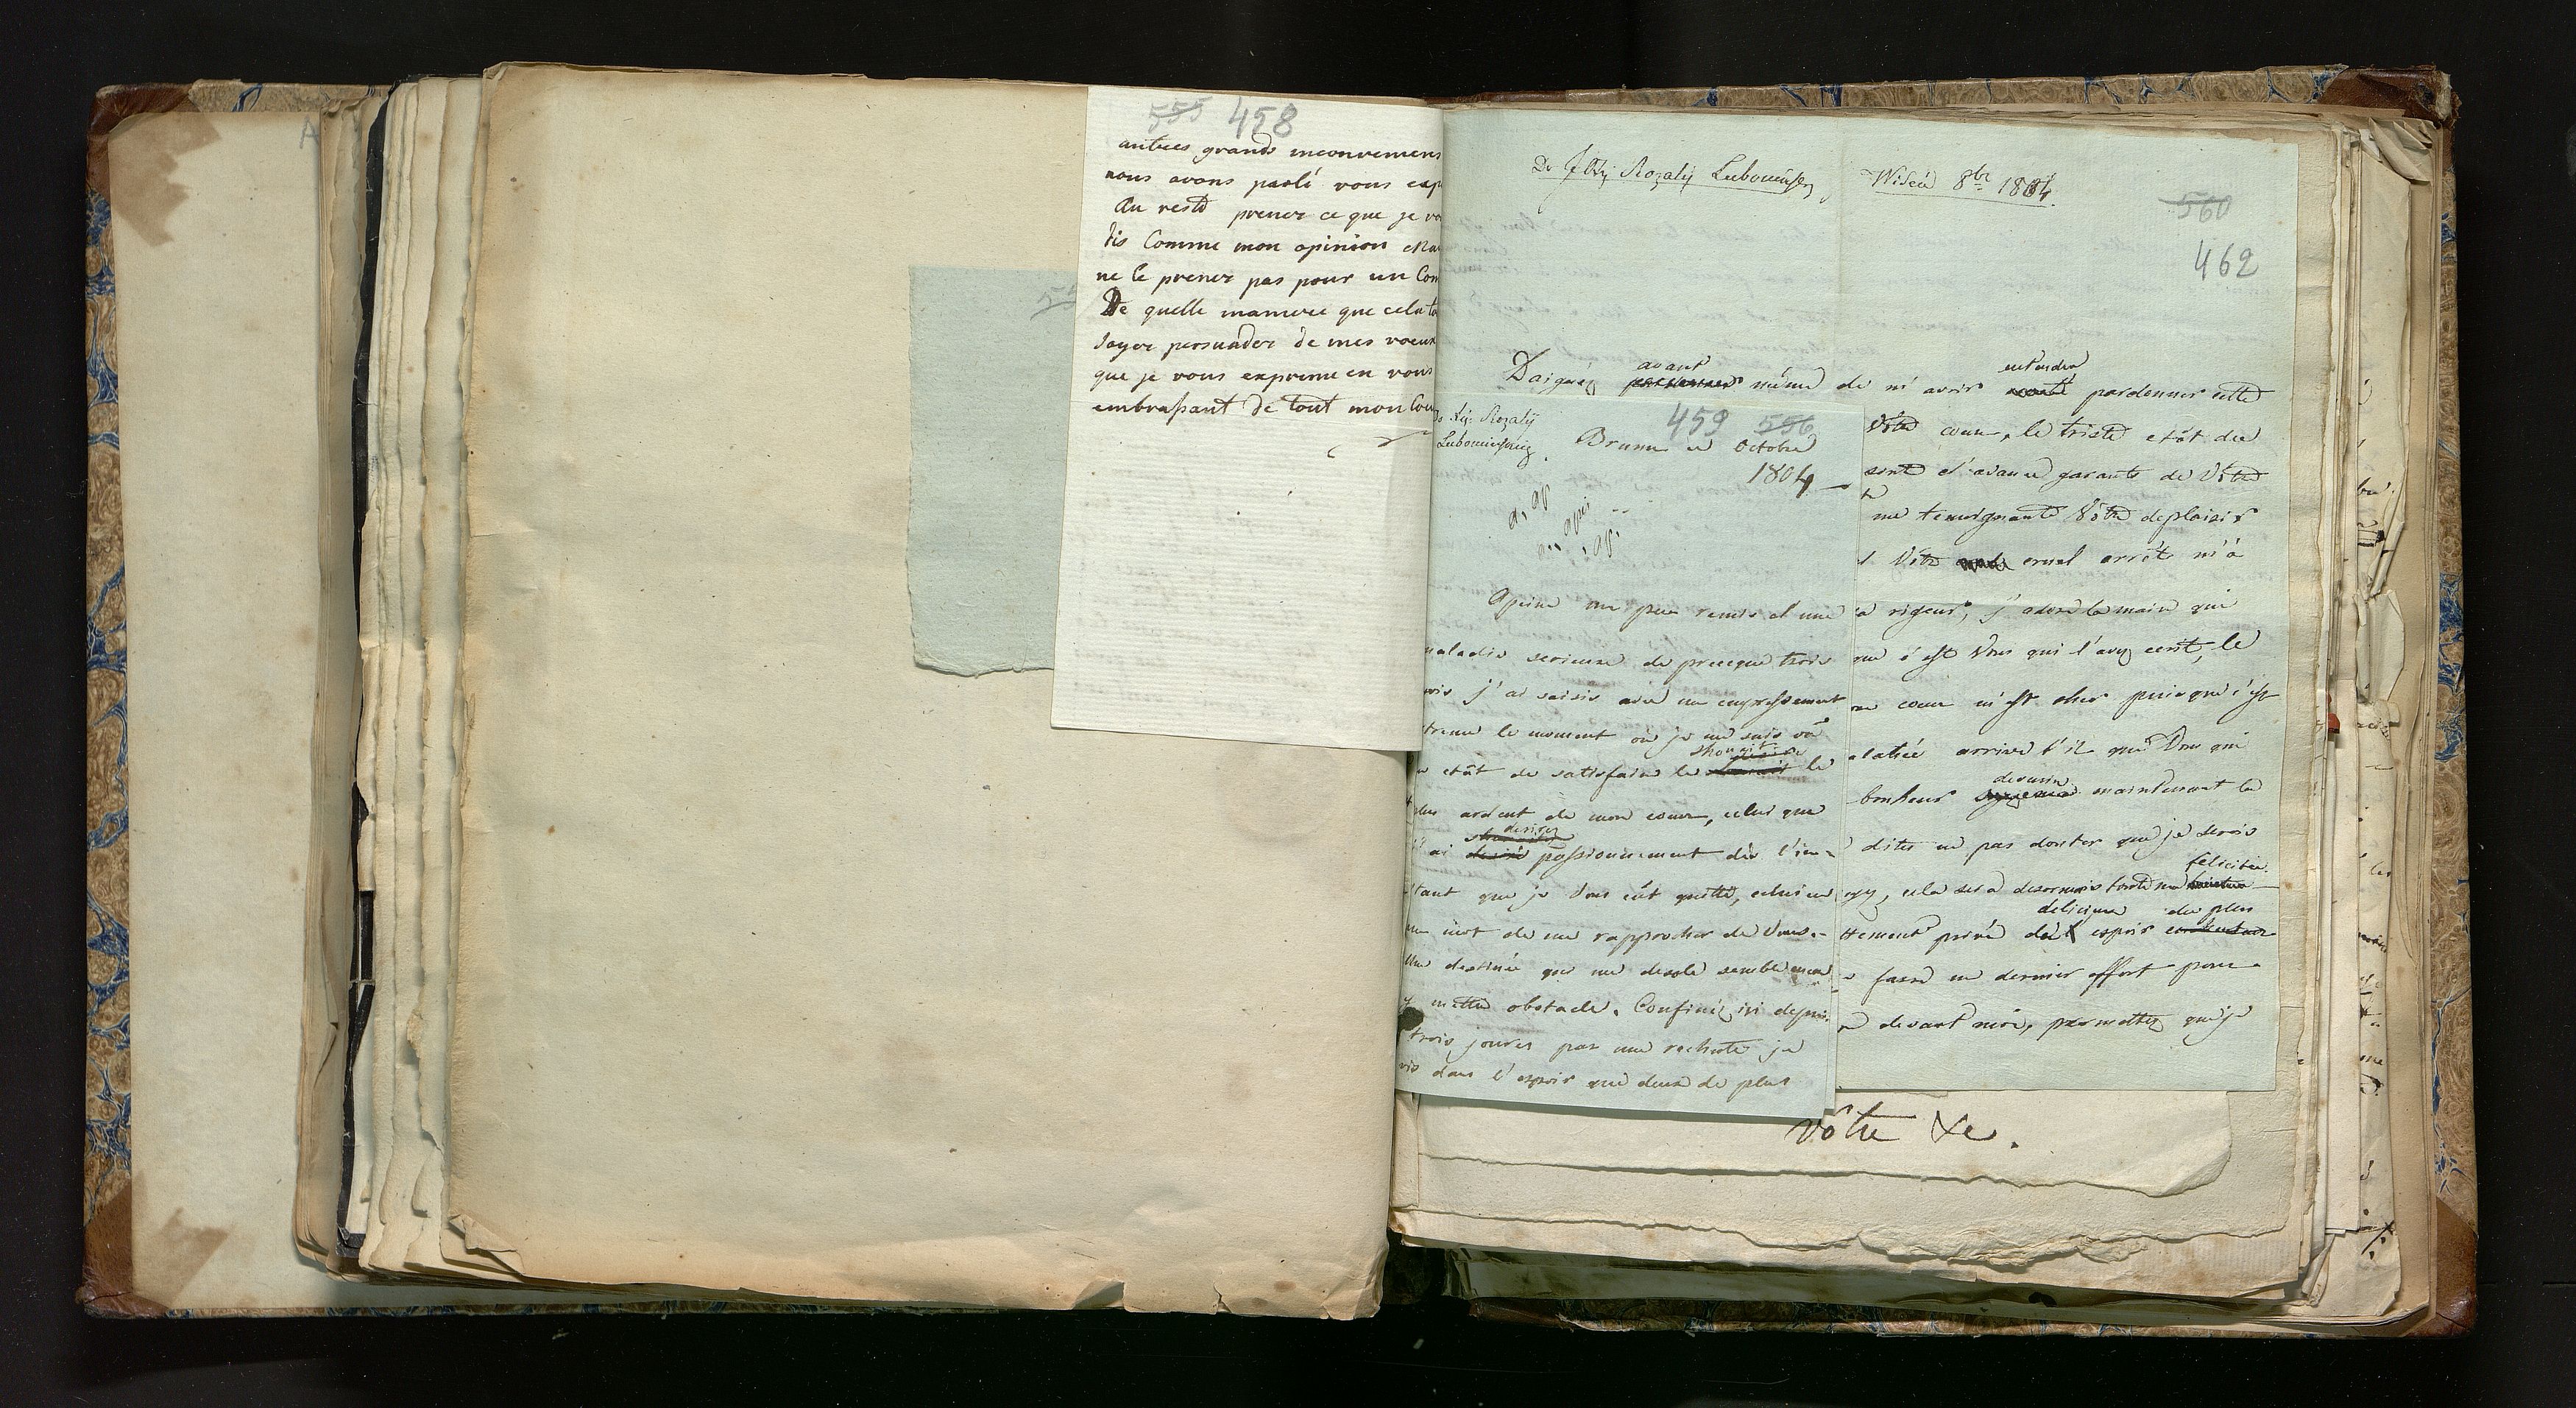 555 458
autres grands inconveniens
nous avons parlé vous exp
Au reste prenez ce que je vo
dis Comme mon opinion Ma
ne le prenez pas pour un Con
De quelle maniere que cela to
soyez persuadez de mes voeux
que je vous exprime en vous
embrassant de tout mon Coeur
Do JO Xży Rozalij Lubomirskiey Wideń 8br 1804.
560
462
Daignéz avant même de m'avoir entendu pardonner cette
Vôtre coeur, le triste etât du
sont d'avance garants de Vôtre
me temoignante Vôtre deplaisir
Vôtre cruel arrêt m'à
la rigeur, j'adore la main qui
que c'est Vous qui l'avez ecrit, le
coeur m'est cher puisque c'est
arrive t'il que Vous qui
bonheur devenir maintenant la
dites ne pas douter que je serois
cela sera desormois toute ma felicitée
ttement privé del espoir delicieux du plus
faire un dernier effort pour
devant moi, permettez que je
459 556
Xży Rozalij
Lubomirskiey
Brunn en Octobre
1804
Apeine un peu remis d'une
maladie serieuse de presque trois
mois j'ai saisis avec un empressement
trême le moment où je me suis vû
etât de satisfaire le le
plus ardent de mon coeur, celui que
j'ai desirez passionnement dès l'in-
stant que je Vous eût quitté, celui en
un mot de me rapprocher de Vous.-
Une destinée qui me desole semble encor
y mettre obstacle. Confinéz ici depuis
trois joures par une rechute je
vis dans l'espoir que deux de plus
vôtre &c.